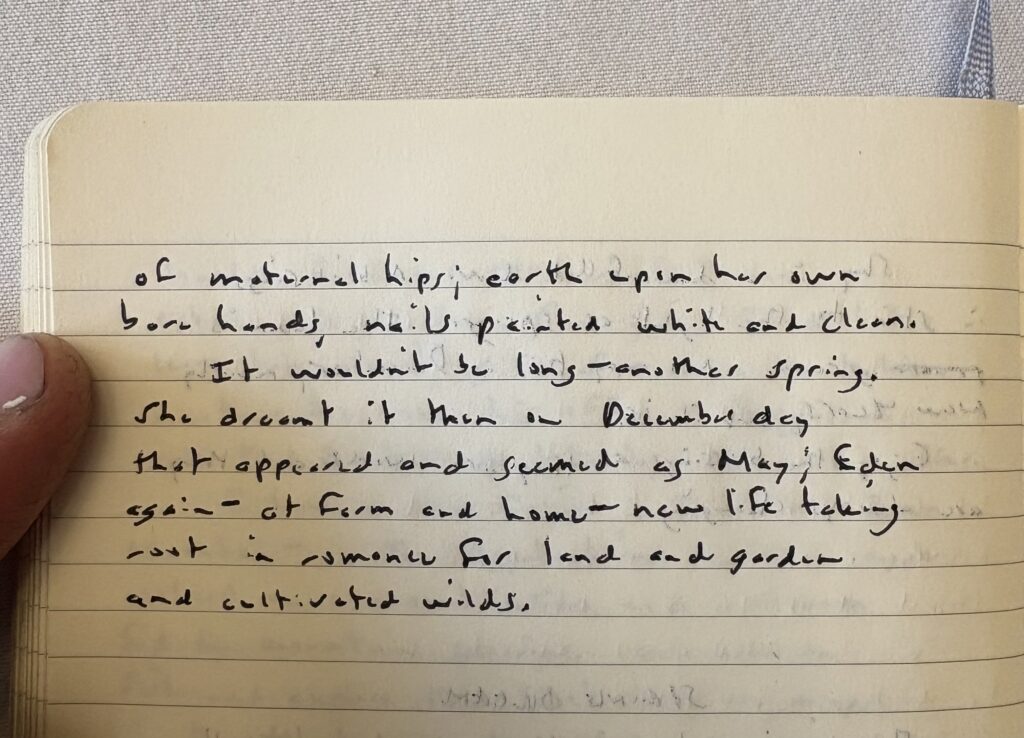 of maternal hips; earth upon her own
bare hands, nails painted white and clean.
It wouldn't be long—another spring.
She dreamt it then on December day
that appeared and seemed as May; Eden
again— at farm and home— new life taking
root in romance for land and garden
and cultivated wilds.